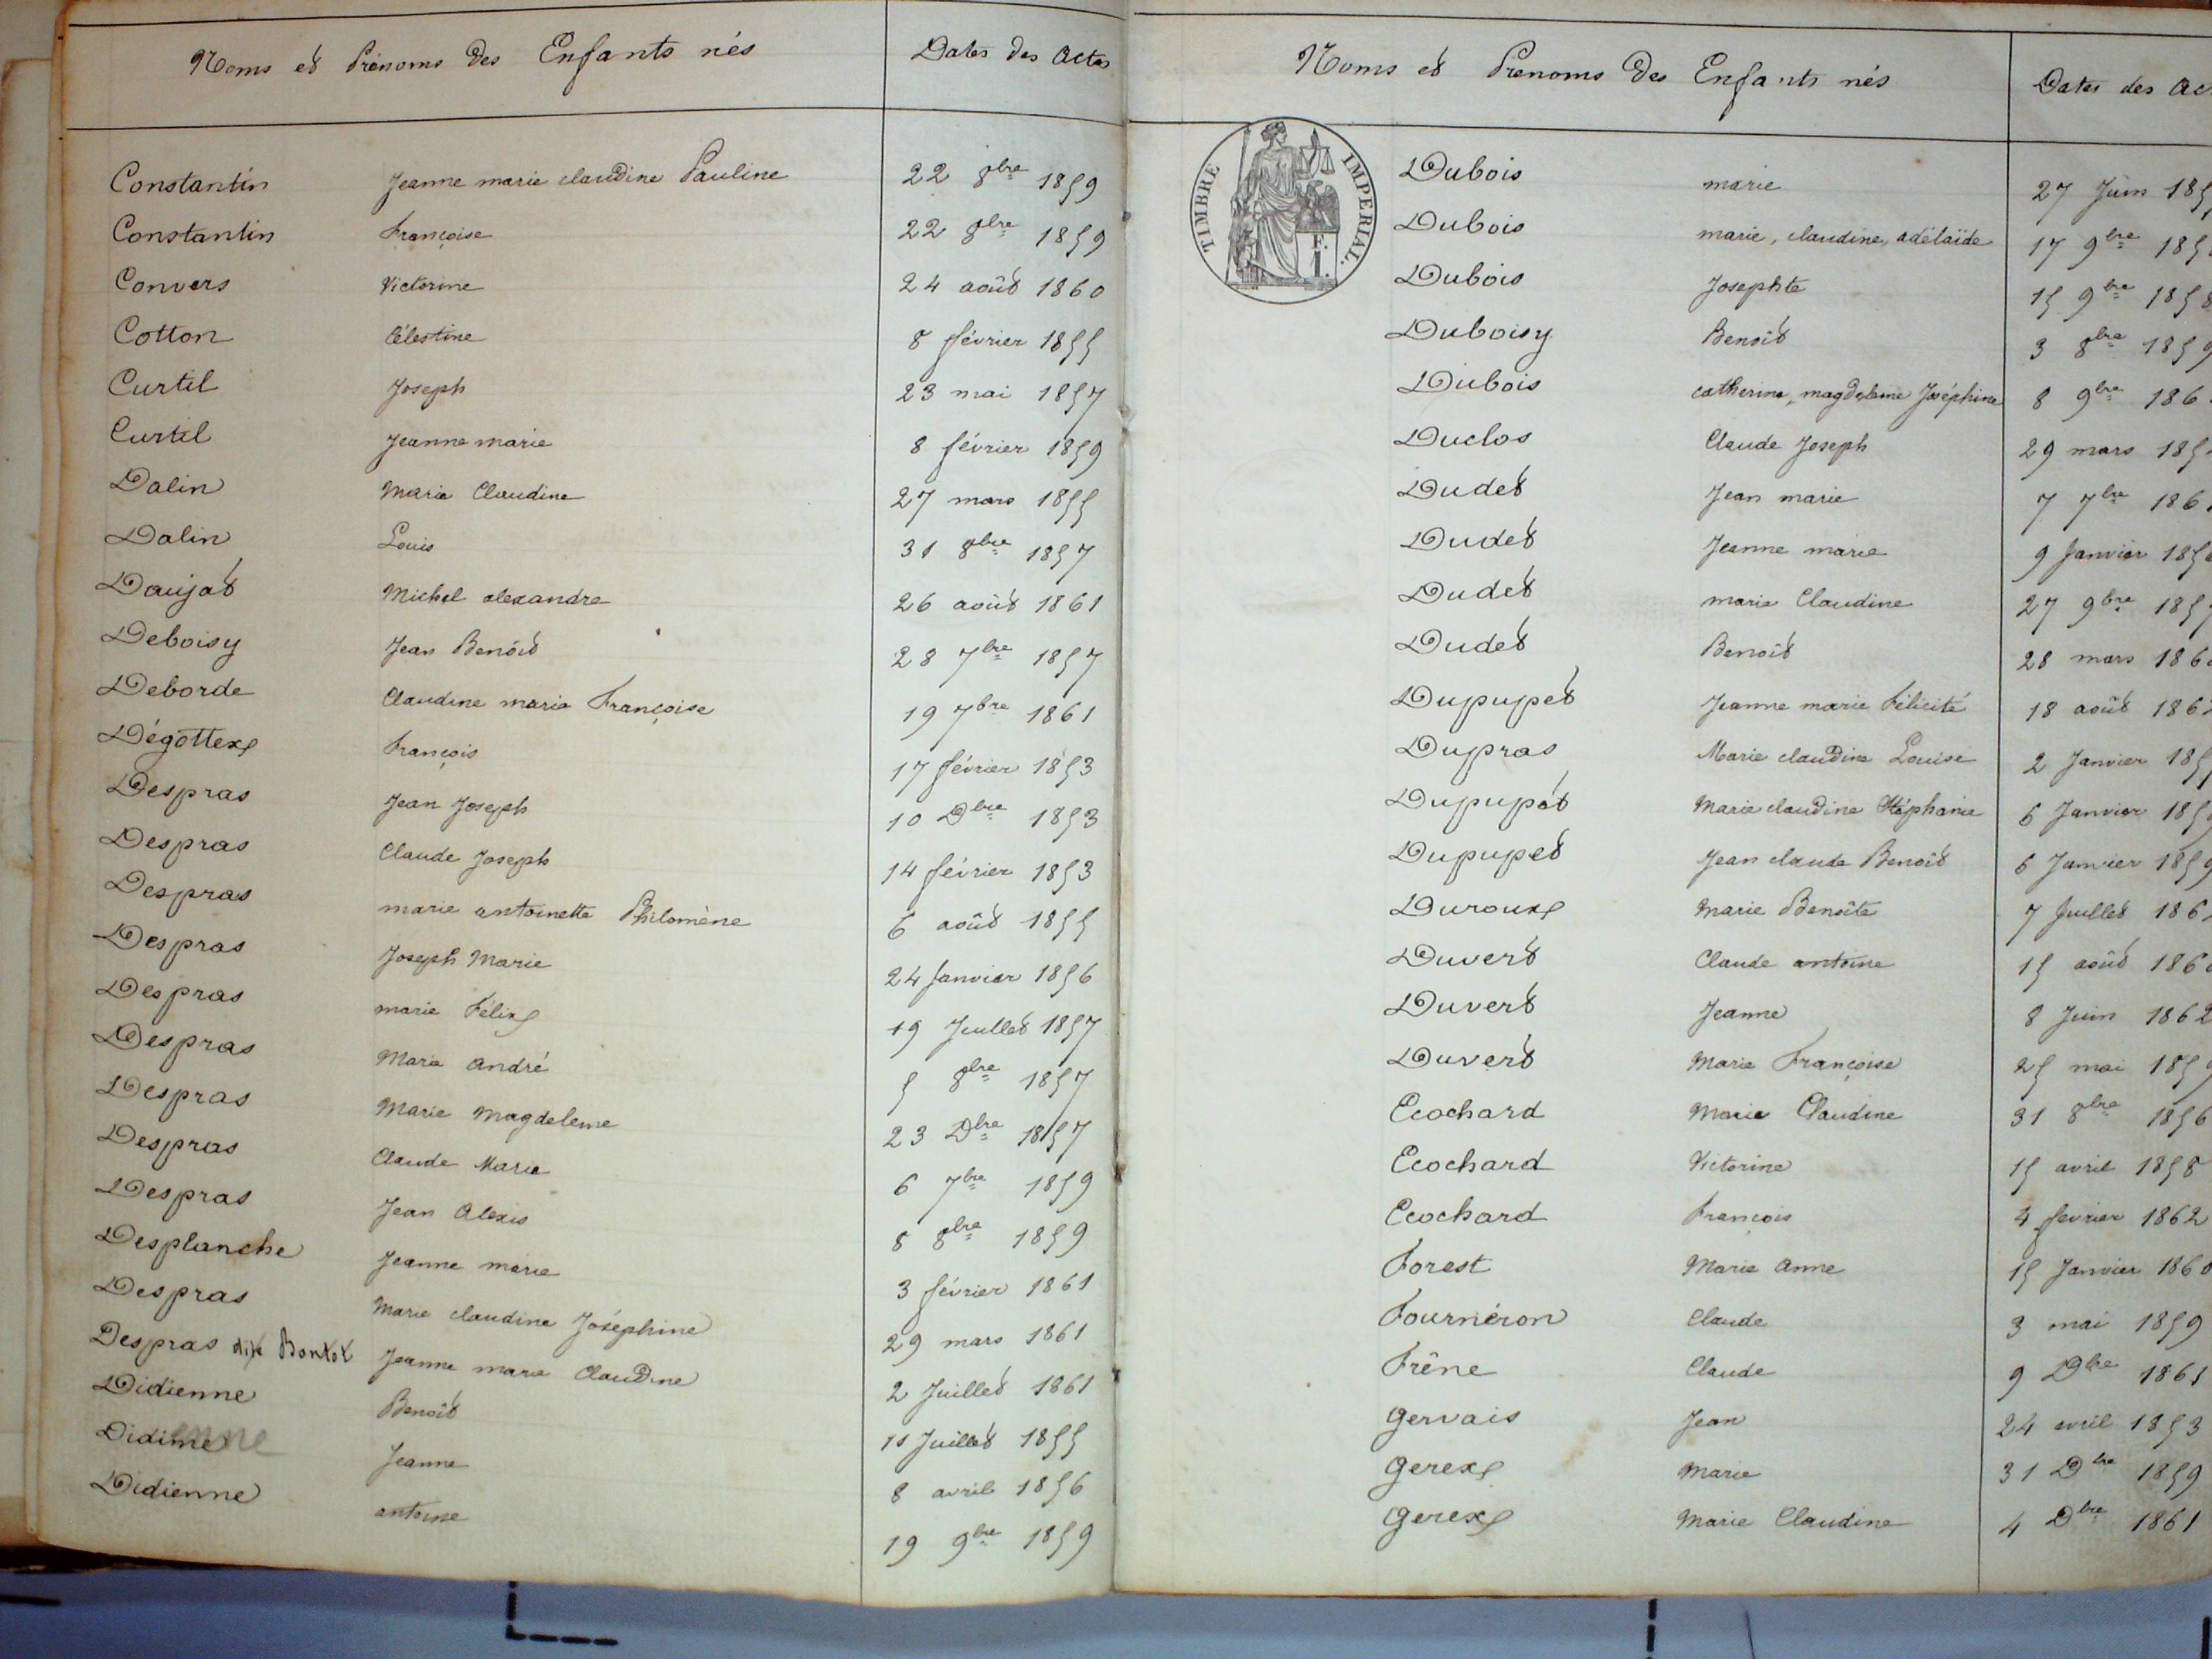 Noms et Prénoms des Enfants nés Dates des Actes
Constantin Jeanne marie claudine Pauline 22 8bre 1859
Constantin Françoise 22 8bre 1859
Convers Victorine 24 août 1860
Cotton Célestine 8 février 1855
Curtil Joseph 23 mai 1857
Curtil Jeanne marie 8 février 1859
Dalin Marie Claudine 27 mars 1855
Dalin Louis 31 8bre 1857
Daujat Michel alexandre 26 août 1861
Deboisy Jean Benoît 28 7bre 1857
Deborde Claudine marie Françoise 19 7bre 1861
Dégottex François 17 février 1853
Despras Jean Joseph 10 Dbre 1853
Despras Claude Joseph 14 février 1853
Despras marie antoinette Philomène 6 août 1855
Despras Joseph Marie 24 Janvier 1856
Despras marie Félix 19 Juillet 1857
Despras Marie andré 5 8bre 1857
Despras Marie Magdeleine 23 Dbre 1857
Despras Claude Marie 6 7bre 1859
Despras Jean Alexis 8 8bre 1859
Desplanche Jeanne marie 3 février 1861
Despras Marie claudine Joséphine 29 mars 1861
Despras dit Bontot Jeanne marie Claudine 2 Juillet 1861
Didienne Benoît 11 Juillet 1855
Didienne Jeanne 8 avril 1856
Didienne antoine 19 9bre 1859
Noms et Prenoms des Enfants nés Dates des Ac
TIMBRE IMPERIAL.
F.
I.
Dubois marie 27 Juin 185
Dubois marie, claudine, adélaïde 17 9bre 185
Dubois Josephte 15 9bre 1858
Duboisy Benoît 3 8bre 1859
Dubois catherine, magdeleine Joséphine 8 9bre 186
Duclos Claude Joseph 29 mars 185
Dudet Jean marie 7 7bre 186
Dudet Jeanne marie 9 Janvier 185
Dudet marie Claudine 27 9bre 1857
Dudet Benoît 28 mars 186
Dupupet Jeanne marie Félicité 18 août 186
Dupras Marie claudine Louise 2 Janvier 185
Dupupet Marie claudine Stéphanie 6 Janvier 185
Dupupet Jean claude Benoît 6 Janvier 1859
Duroux Marie Benoîte 7 Juillet 186
Duvert Claude antoine 15 août 186
Duvert Jeanne 8 Juin 1862
Duvert Marie Françoise 25 mai 1859
Ecochard Marie Claudine 31 8bre 1856
Ecochard Victorine 15 avril 1858
Ecochard Francois 4 fevrier 1862
Forest Marie Anne 15 Janvier 1860
Fournéron Claude 3 mai 1859
Frêne Claude 9 Dbre 1861
Gervais Jean 24 avril 1853
Gerex Marie 31 Dbre 1859
Gerex Marie Claudine 4 Dbre 1861